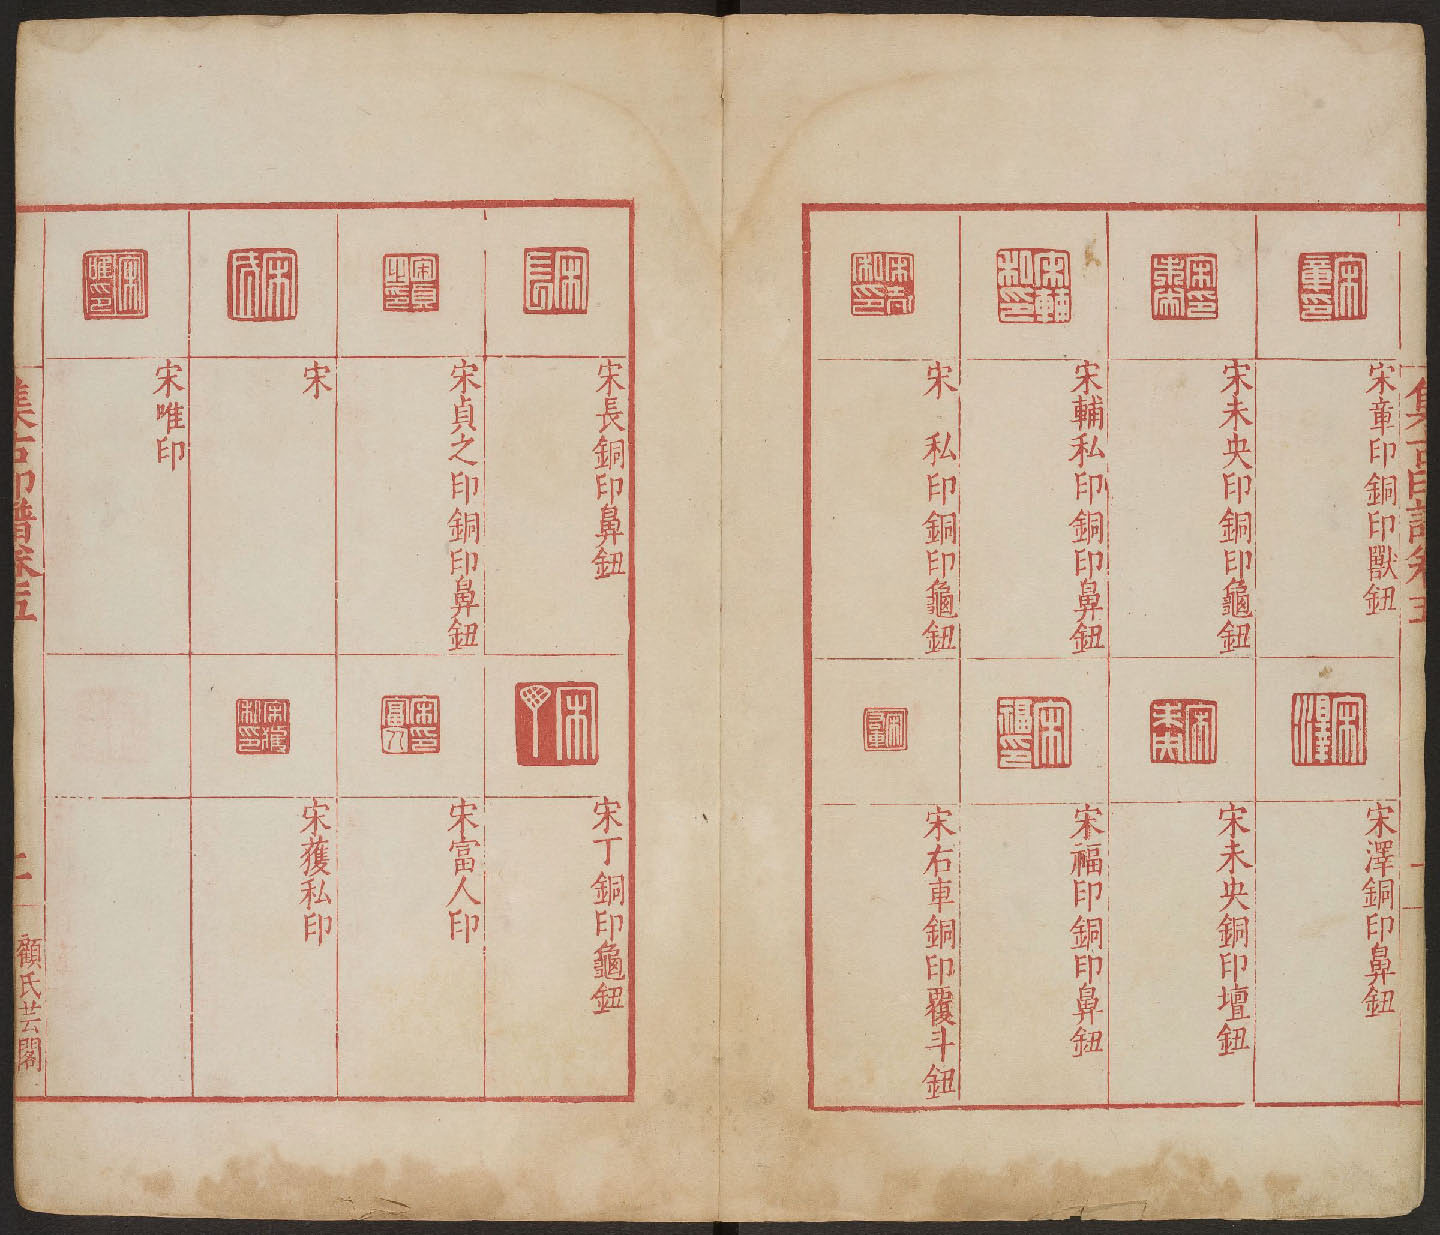 集古印譜卷五
宋章印銅印獸鈕
宋未央印銅印龜鈕
宋輔私印銅印鼻鈕
宋 私印銅印龜鈕
宋澤銅印鼻鈕
宋未央銅印壇鈕
宋福印銅印鼻鈕
宋右車銅印覆斗鈕
宋長銅印鼻鈕
宋貞之印銅印鼻鈕
宋
宋唯印
宋丁銅印龜鈕
宋富人印
宋獲私印
集古印譜卷五
顧氏芸閣